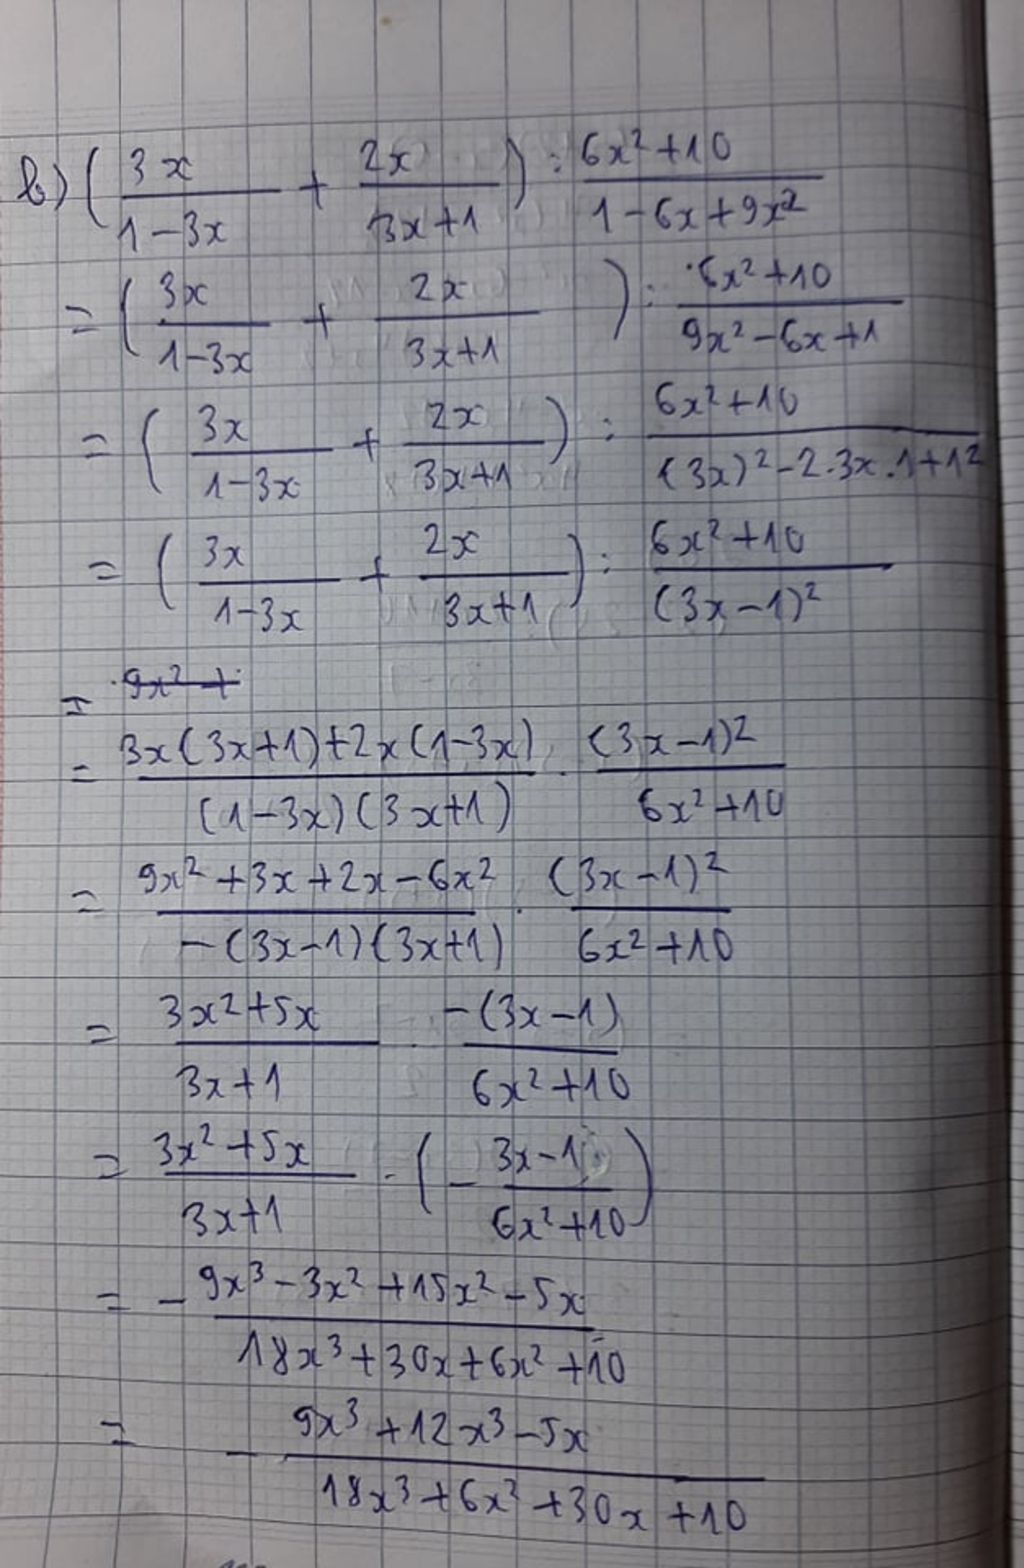 b) ( 3x / 1-3x + 2x / 3x+1 ) : 6x²+10 / 1-6x+9x²
= ( 3x / 1-3x + 2x / 3x+1 ) : 6x²+10 / 9x²-6x+1
= ( 3x / 1-3x + 2x / 3x+1 ) : 6x²+10 / (3x)²-2.3x.1+1²
= ( 3x / 1-3x + 2x / 3x+1 ) : 6x²+10 / (3x-1)²
= 9x² +
= 3x(3x+1)+2x(1-3x) / (1-3x)(3x+1) . (3x-1)² / 6x²+10
= 9x²+3x+2x-6x² / -(3x-1)(3x+1) . (3x-1)² / 6x²+10
= 3x²+5x / 3x+1 . -(3x-1) / 6x²+10
= 3x²+5x / 3x+1 . ( - 3x-1 / 6x²+10 )
= - 9x³-3x²+15x²-5x / 18x³+30x+6x²+10
= - 9x³+12x³-5x / 18x³+6x²+30x+10